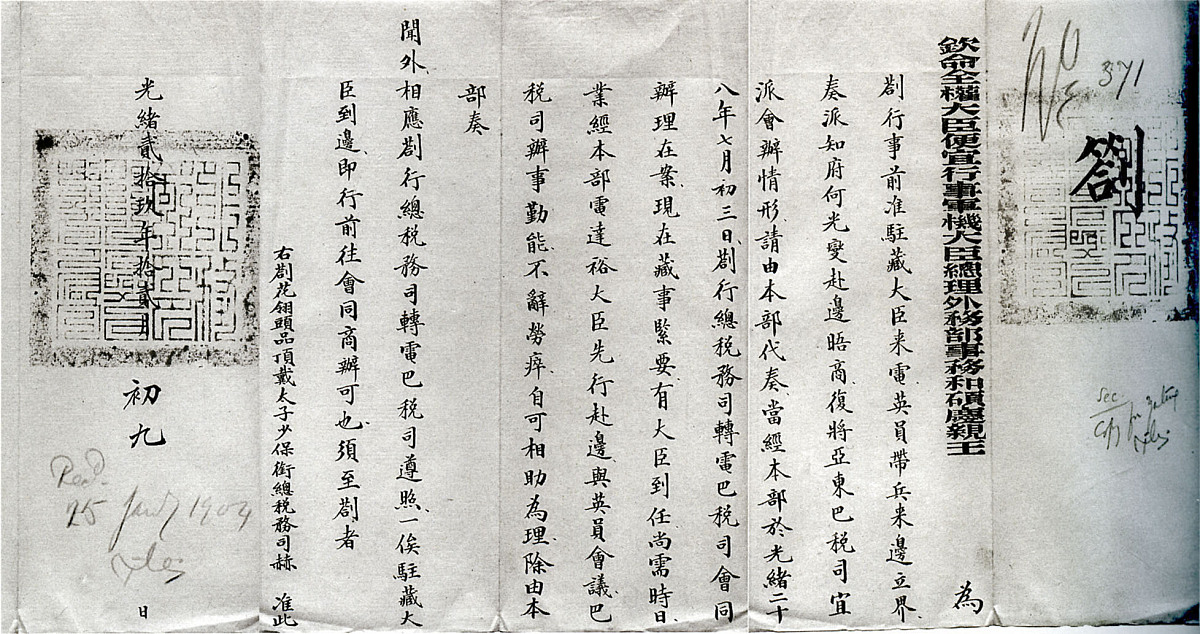 No 371
劄
欽命全權大臣便宜行事軍機大臣總理外務部事務和碩慶親王 為
劄行事前准駐藏大臣来電英員帶兵来邊立界
奏派知府何光燮赴邊晤商復將亞東巴税司宜
派會辦情形請由本部代奏當經本部於光緒二十
八年七月初三日劄行總税務司轉電巴税司會同
辦理在案現在藏事緊要有大臣到任尚需時日
業經本部電達裕大臣先行赴邊與英員會議巴
税司辦事勤能不辭勞瘁自可相助為理除由本
部奏
聞外相應劄行總税務司轉電巴税司遵照一俟駐藏大
臣到邊即行前往會同商辦可也須至劄者
右劄花翎頭品頂戴太子少保銜總税務司赫 准此
光緒貳拾玖年拾貳月
初九
日
Sec
Recd.
25 Jany 1904